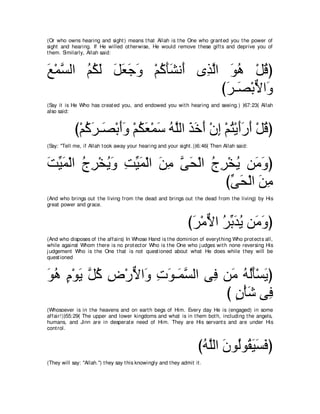 (Or who owns hearing and sight) means that Allah is the One who granted you the power of
sight and hearing. If He willed otherwise, He would remove these gifts and deprive you of
them. Similarly, Allah said:
﴿قُلْ هُوَ الَّذِى أَنشَأَكُمْ وَجَعَلَ لَكُمُ السَّمْعَ
وَالاٌّبْصَـرَ﴾
(Say it is He Who has created you, and endowed you with hearing and seeing.) )67:23( Allah
also said:
﴿قُلْ أَرَأَيْتُمْ إِنْ أَخَذَ اللَّهُ سَمْعَكُمْ وَأَبْصَـرَكُمْ﴾
(Say: "Tell me, if Allah took away your hearing and your sight.)6:46( Then Allah said:
﴿وَمَن يُخْرِجُ الْحَىَّ مِنَ الْمَيِّتِ وَيُخْرِجُ الْمَيِّتَ
مِنَ الْحَىِّ﴾
(And who brings out the living from the dead and brings out the dead from the living) by His
great power and grace.
﴿وَمَن يُدَبِّرُ الاٌّمْرَ﴾
(And who disposes of the affairs) In Whose Hand is the dominion of everything Who protects all,
while against Whom there is no protector Who is the One who judges with none reversing His
judgement Who is the One that is not questioned about what He does while they will be
questioned
﴿يَسْأَلُهُ مَن فِى السَّمَـوَتِ وَالاٌّرْضِ كُلَّ يَوْمٍ هُوَ
فِى شَأْنٍ ﴾
(Whosoever is in the heavens and on earth begs of Him. Every day He is (engaged) in some
affair!)(55:29( The upper and lower kingdoms and what is in them both, including the angels,
humans, and Jinn are in desperate need of Him. They are His servants and are under His
control.
﴿فَسَيَقُولُونَ اللَّهُ﴾
(They will say: "Allah.") they say this knowingly and they admit it.